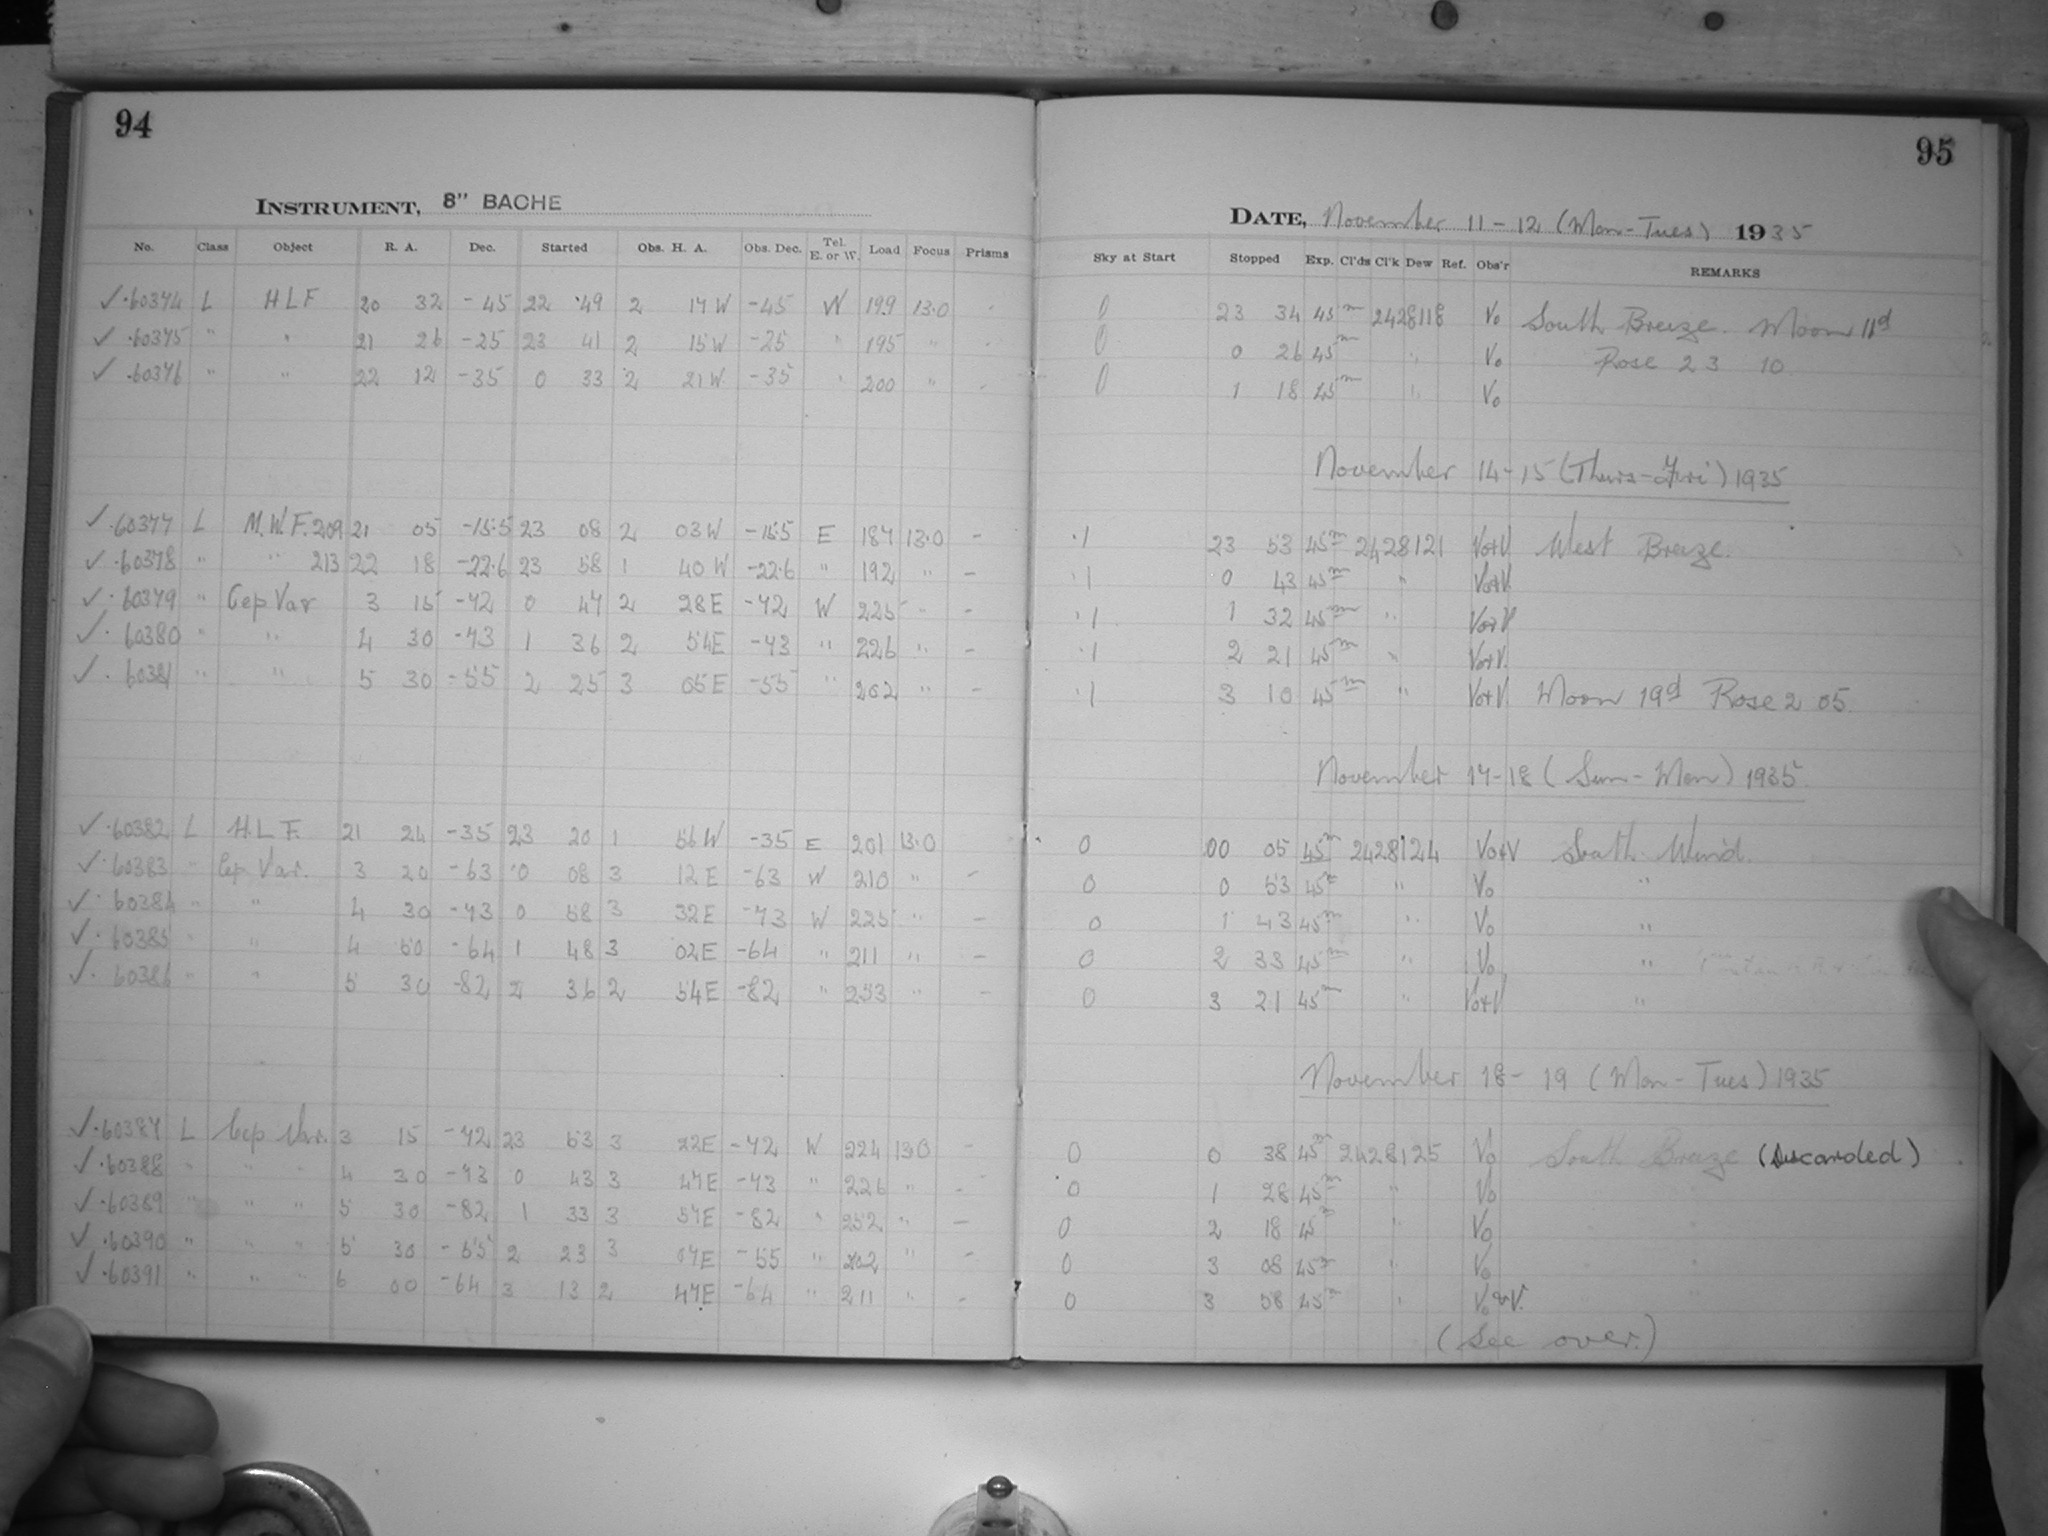 94
INSTRUMENT, 8" BACHE
No. Class Object R. A. Dec. Started Obs. H. A. Obs. Dec. Tel. E. or W. Load Focus Prisms
✓ .60374 L H L F 20 32 -45 22 49 2 17 W -45 W 199 13.0 -
✓ .60375 " " 21 26 -25 23 41 2 15 W -25 " 195 " -
✓ .60376 " " 22 12 -35 0 33 2 21 W -35 " 200 " -
✓ .60377 L M.W.F. 209 21 05 -15.5 23 08 2 03 W -15.5 E 187 13.0 -
✓ .60378 " " 213 22 18 -22.6 23 58 1 40 W -22.6 " 192 " -
✓ .60379 " Cep Var 3 15 -72 0 47 2 28 E -72 W 225 " -
✓ .60380 " " 4 30 -73 1 36 2 54 E -73 " 226 " -
✓ .60381 " " 5 30 -55 2 25 3 05 E -55 " 202 " -
✓ .60382 L H.L.F. 21 24 -35 23 20 1 56 W -35 E 201 13.0
✓ .60383 " Cep Var. 3 20 -63 0 08 3 12 E -63 W 210 " -
✓ .60384 " " 4 30 -73 0 58 3 32 E -73 W 225 " -
✓ .60385 " " 4 50 -64 1 48 3 02 E -64 " 211 " -
✓ .60386 " " 5 30 -82 2 36 2 54 E -82 " 253 " -
✓ .60387 L Cep Var. 3 15 -72 23 53 3 22 E -72 W 224 13.0
✓ .60388 " " " 4 30 -73 0 43 3 47 E -73 " 226 " -
✓ .60389 " " " 5 30 -82 1 33 3 57 E -82 " 252 " -
✓ .60390 " " " 5 30 -55 2 23 3 07 E -55 " 202 " -
✓ .60391 " " " 6 00 -64 3 13 2 47 E -64 " 211 " -
95
DATE, November 11-12 (Mon-Tues) 1935
Sky at Start Stopped Exp. Cl'ds Cl'k Dew Ref. Obs'r REMARKS
0 23 34 45m 2428118 Vo South Breeze. Moon 11d
0 0 26 45m " Vo Rose 23 10
0 1 18 45m " Vo
November 14-15 (Thurs-Fri) 1935
.1 23 53 45m 2428121 Vo+V West Breeze.
.1 0 43 45m " Vo+V.
.1 1 32 45m " Vo+V
.1 2 21 45m " Vo+V.
.1 3 10 45m " Vo+V. Moon 19d Rose 2 05.
November 17-18 (Sun-Mon) 1935.
0 00 05 45m 2428124 Vo+V South Wind.
0 0 53 45m " Vo "
0 1 43 45m " Vo "
0 2 33 45m " Vo "
0 3 21 45m " Vo+V "
November 18-19 (Mon-Tues) 1935
0 0 38 45m 2428125 Vo South Breeze (Discarded)
0 1 28 45m " Vo
0 2 18 45m " Vo
0 3 08 45m " Vo
0 3 58 45m " Vo & V.
(See over.)